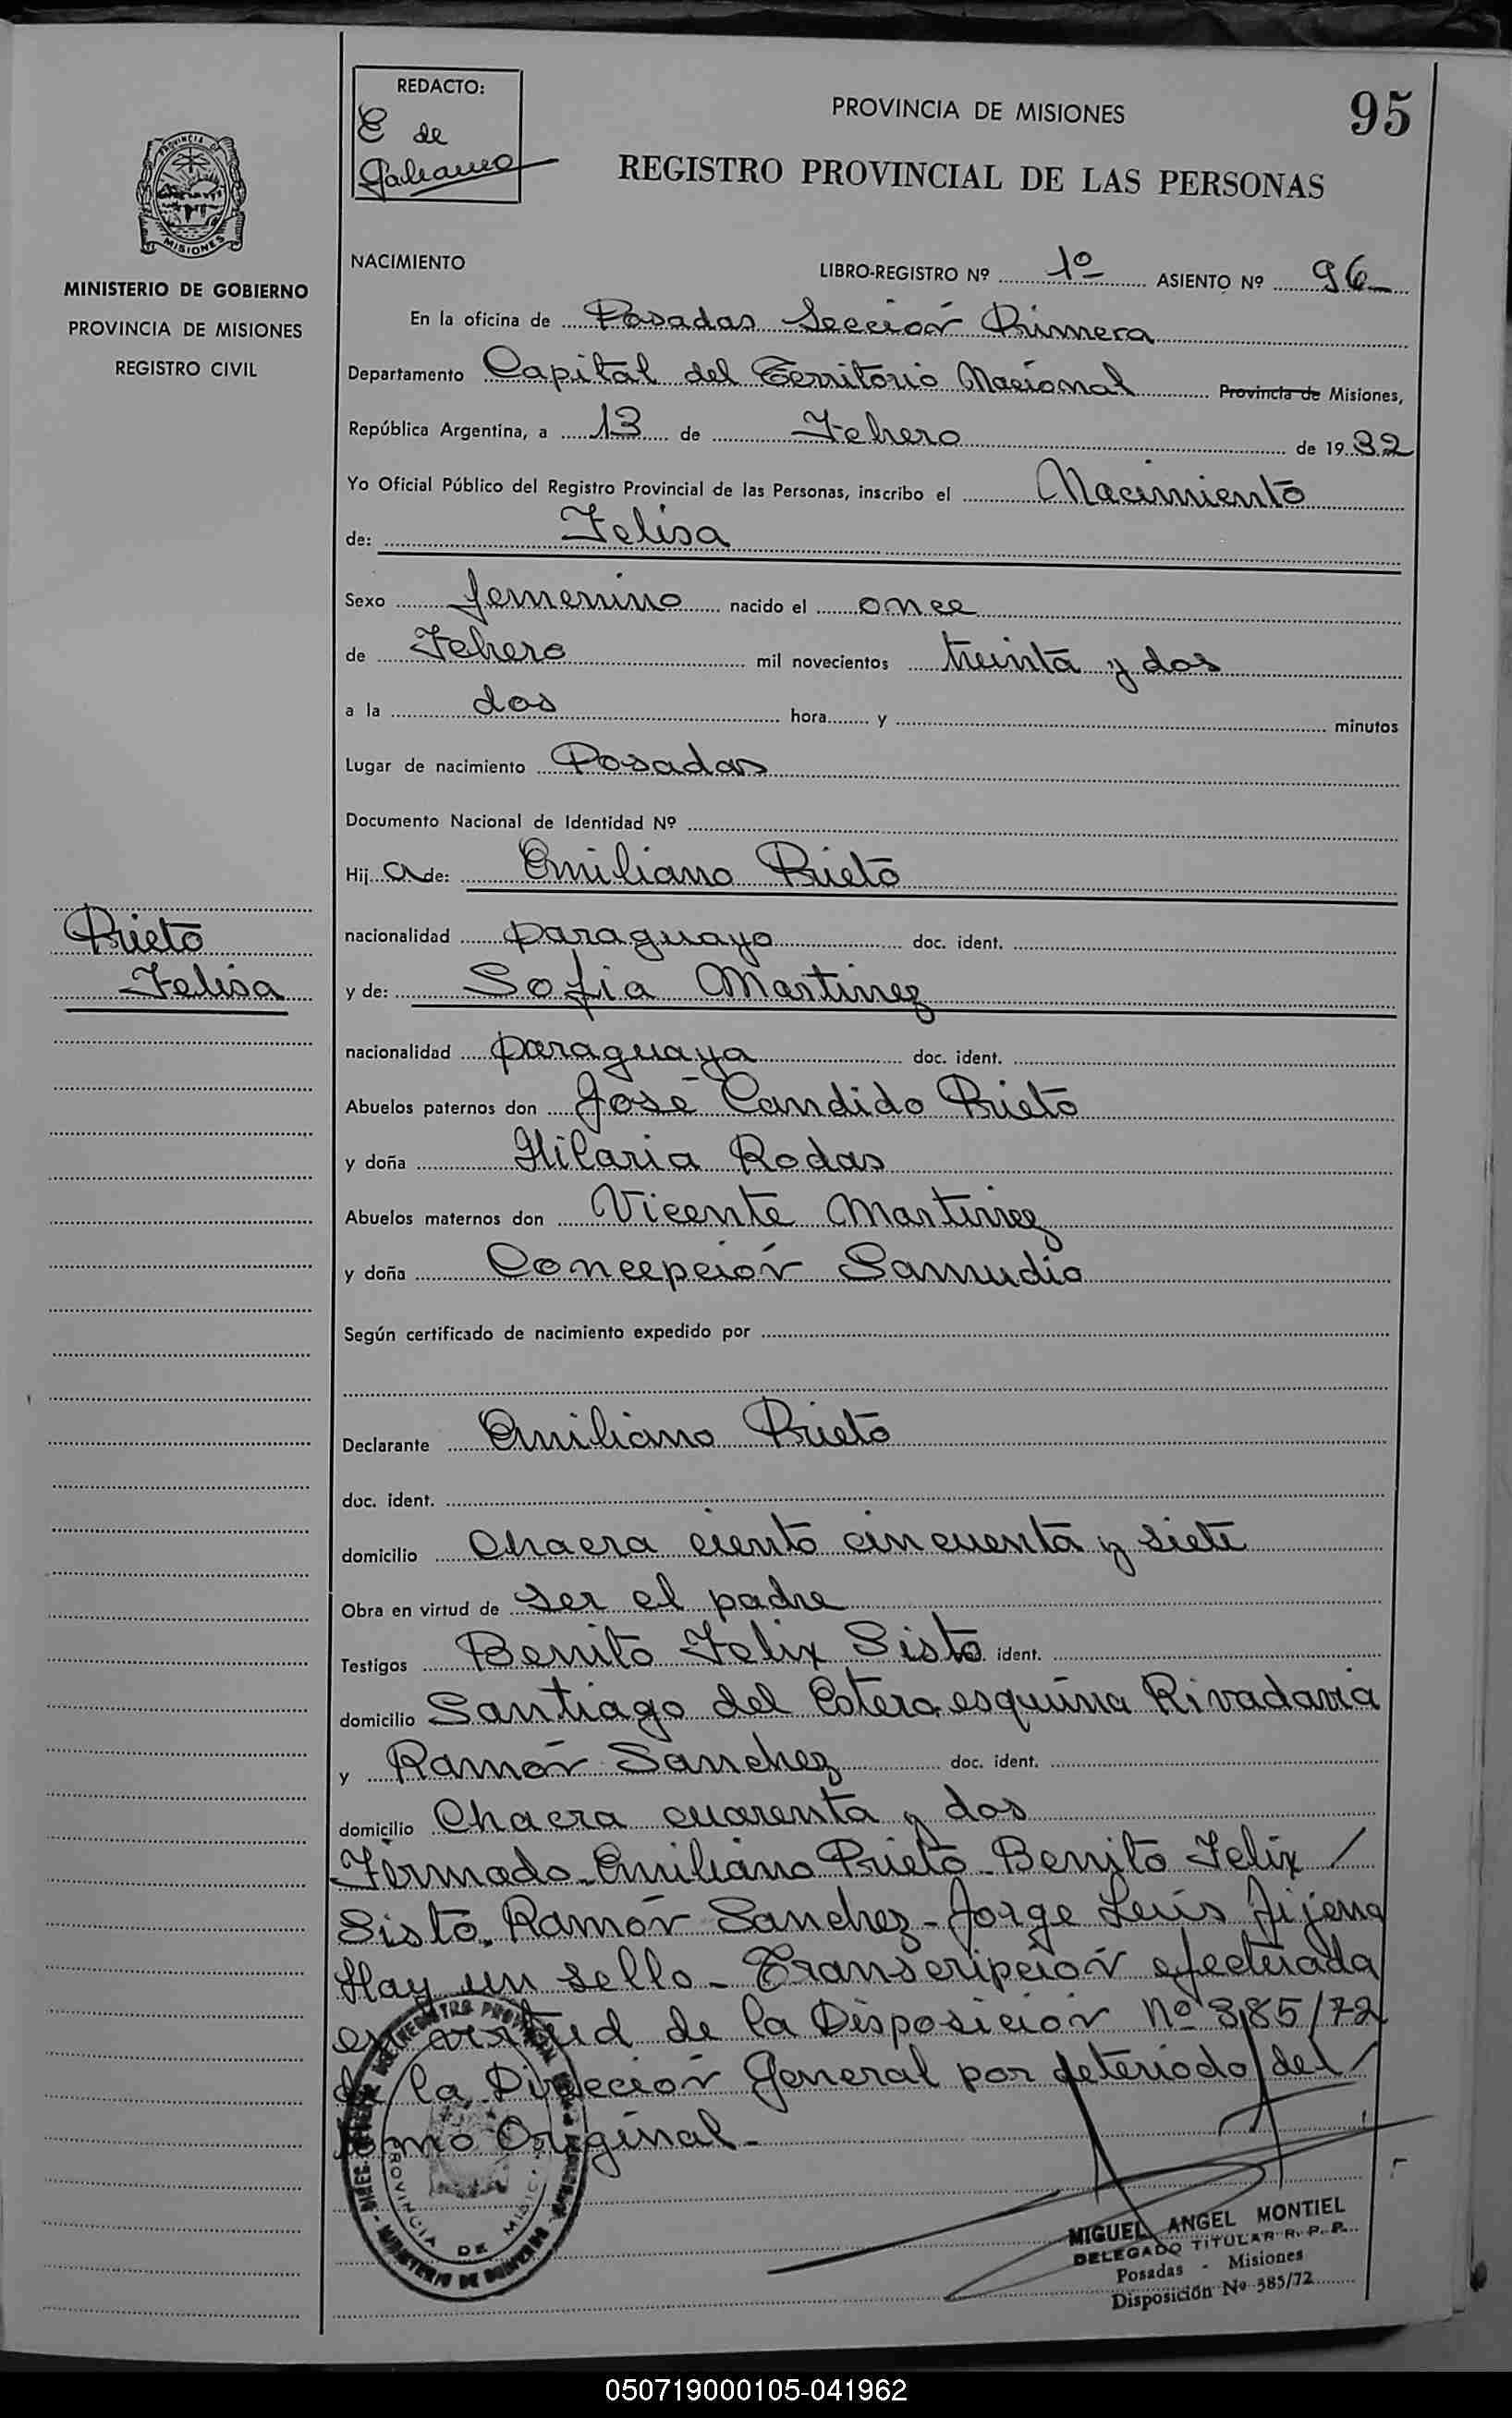 REDACTO:
E de
Galeano
PROVINCIA DE MISIONES
95
REGISTRO PROVINCIAL DE LAS PERSONAS
PROVINCIA DE
MISIONES
MINISTERIO DE GOBIERNO
PROVINCIA DE MISIONES
REGISTRO CIVIL
NACIMIENTO
LIBRO-REGISTRO Nº 1º ASIENTO Nº 96
En la oficina de Posadas Sección Primera
Departamento Capital del Territorio Nacional Provincia de Misiones,
República Argentina, a 13 de Febrero de 1932
Yo Oficial Público del Registro Provincial de las Personas, inscribo el Nacimiento
de: Felisa
Sexo femenino nacido el once
de Febrero mil novecientos treinta y dos
a la dos hora y minutos
Lugar de nacimiento Posadas
Documento Nacional de Identidad Nº
Hij a de: Emiliano Prieto
Prieto
Felisa
nacionalidad paraguayo doc. ident.
y de: Sofia Martinez
nacionalidad paraguaya doc. ident.
Abuelos paternos don José Candido Prieto
y doña Hilaria Rodas
Abuelos maternos don Vicente Martinez
y doña Concepción Samudio
Según certificado de nacimiento expedido por
Declarante Emiliano Prieto
doc. ident.
domicilio Chacra ciento cincuenta y siete
Obra en virtud de ser el padre
Testigos Benito Felix Sisto ident.
domicilio Santiago del Estero esquina Rivadavia
y Ramón Sanchez doc. ident.
domicilio Chacra cuarenta y dos
Firmado. Emiliano Prieto - Benito Felix /
Sisto. Ramón Sanchez - Jorge Luis Jijena
Hay un sello - Transcripción efectuada
en virtud de la Disposición Nº 385/72
de la Dirección General por deteriodo del /
tomo Original -
PROVINCIA DE MISIONES
MINISTERIO DE GOBIERNO
MIGUEL ANGEL MONTIEL
DELEGADO TITULAR R. P. P.
Posadas - Misiones
Disposición Nº 385/72
050719000105-041962